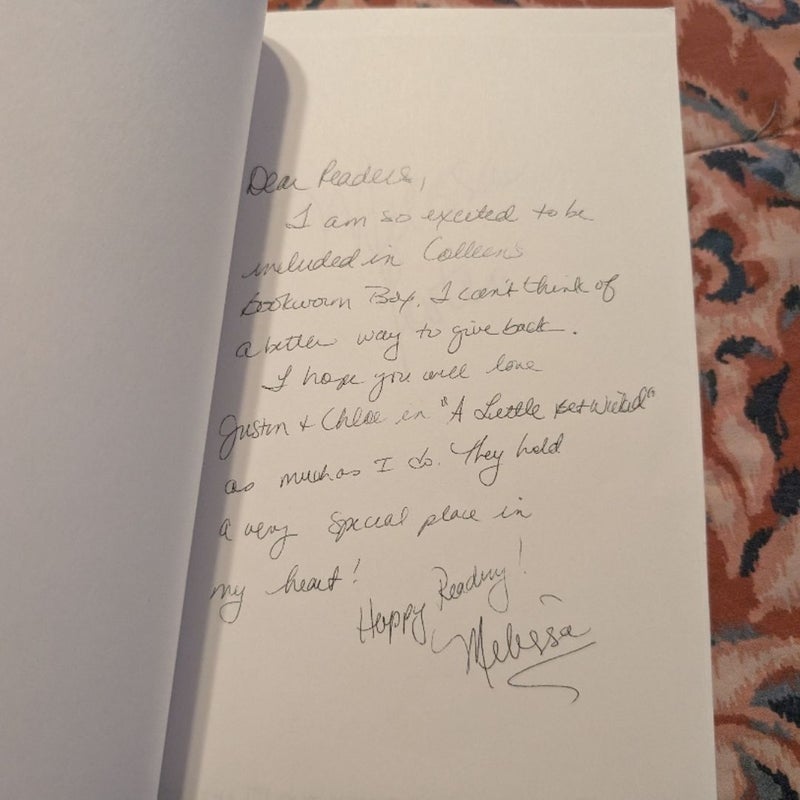 Dear Readers,
I am so excited to be
included in Colleen's
bookworm Box. I can't think of
a better way to give back.
I hope you will love
Justin + Chloe in "A Little Bit Wicked"
as much as I do. They hold
a very special place in
my heart!
Happy Reading!
Melissa